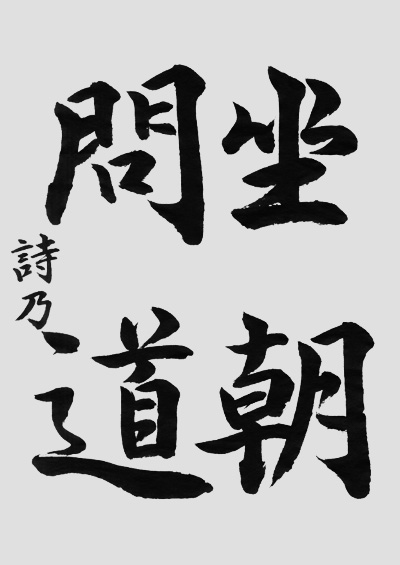 坐朝
問道
詩乃